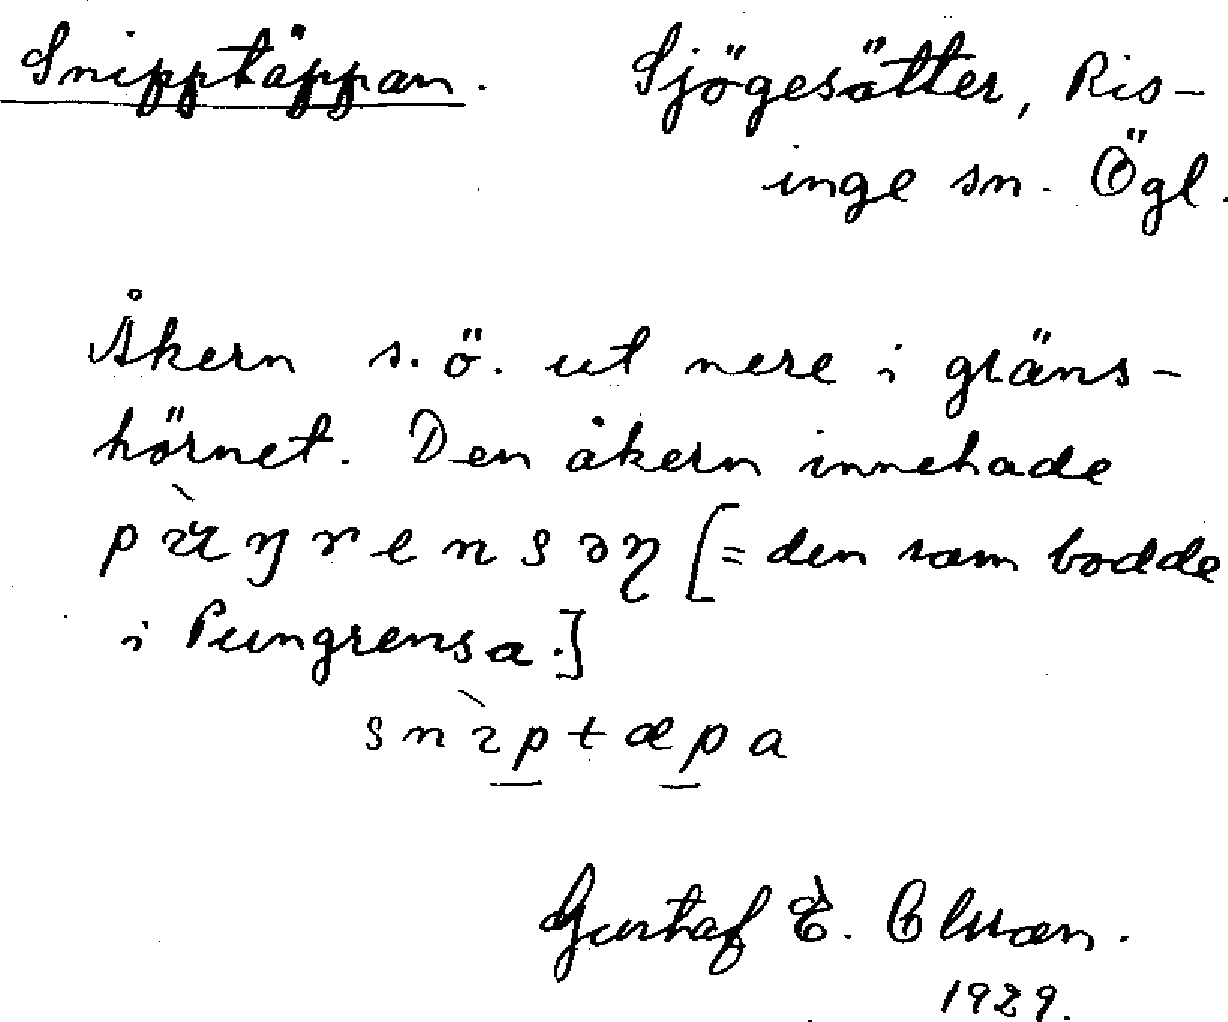 Snipptäppan. Sjögesätter, Ris-
inge sn. Ögl.
Åkern s.ö. ut nere i gräns-
hörnet. Den åkern innehade
[= den som bodde
i Pungrensa.]
snìptæpa
Gustaf E.
1929.